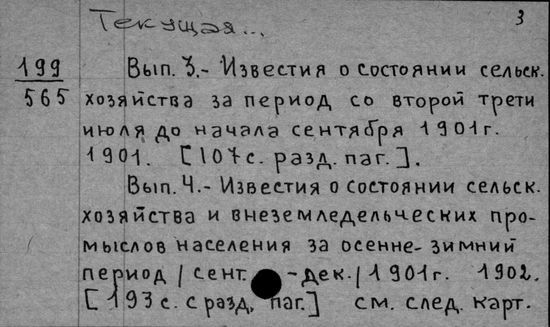 Текущая... 3
199
565
Вып. 3.- Известия о состоянии сельск.
хозяйства за период со второй трети
июля до начала сентября 1901г.
1901. [107с. разд. паг.].
Вып. 4.- Известия о состоянии сельск.
хозяйства и внеземледельческих про-
мыслов населения за осенне-зимний
период /сент. -дек./ 1901г. 1902.
[193с. с разд. паг.] см. след. карт.